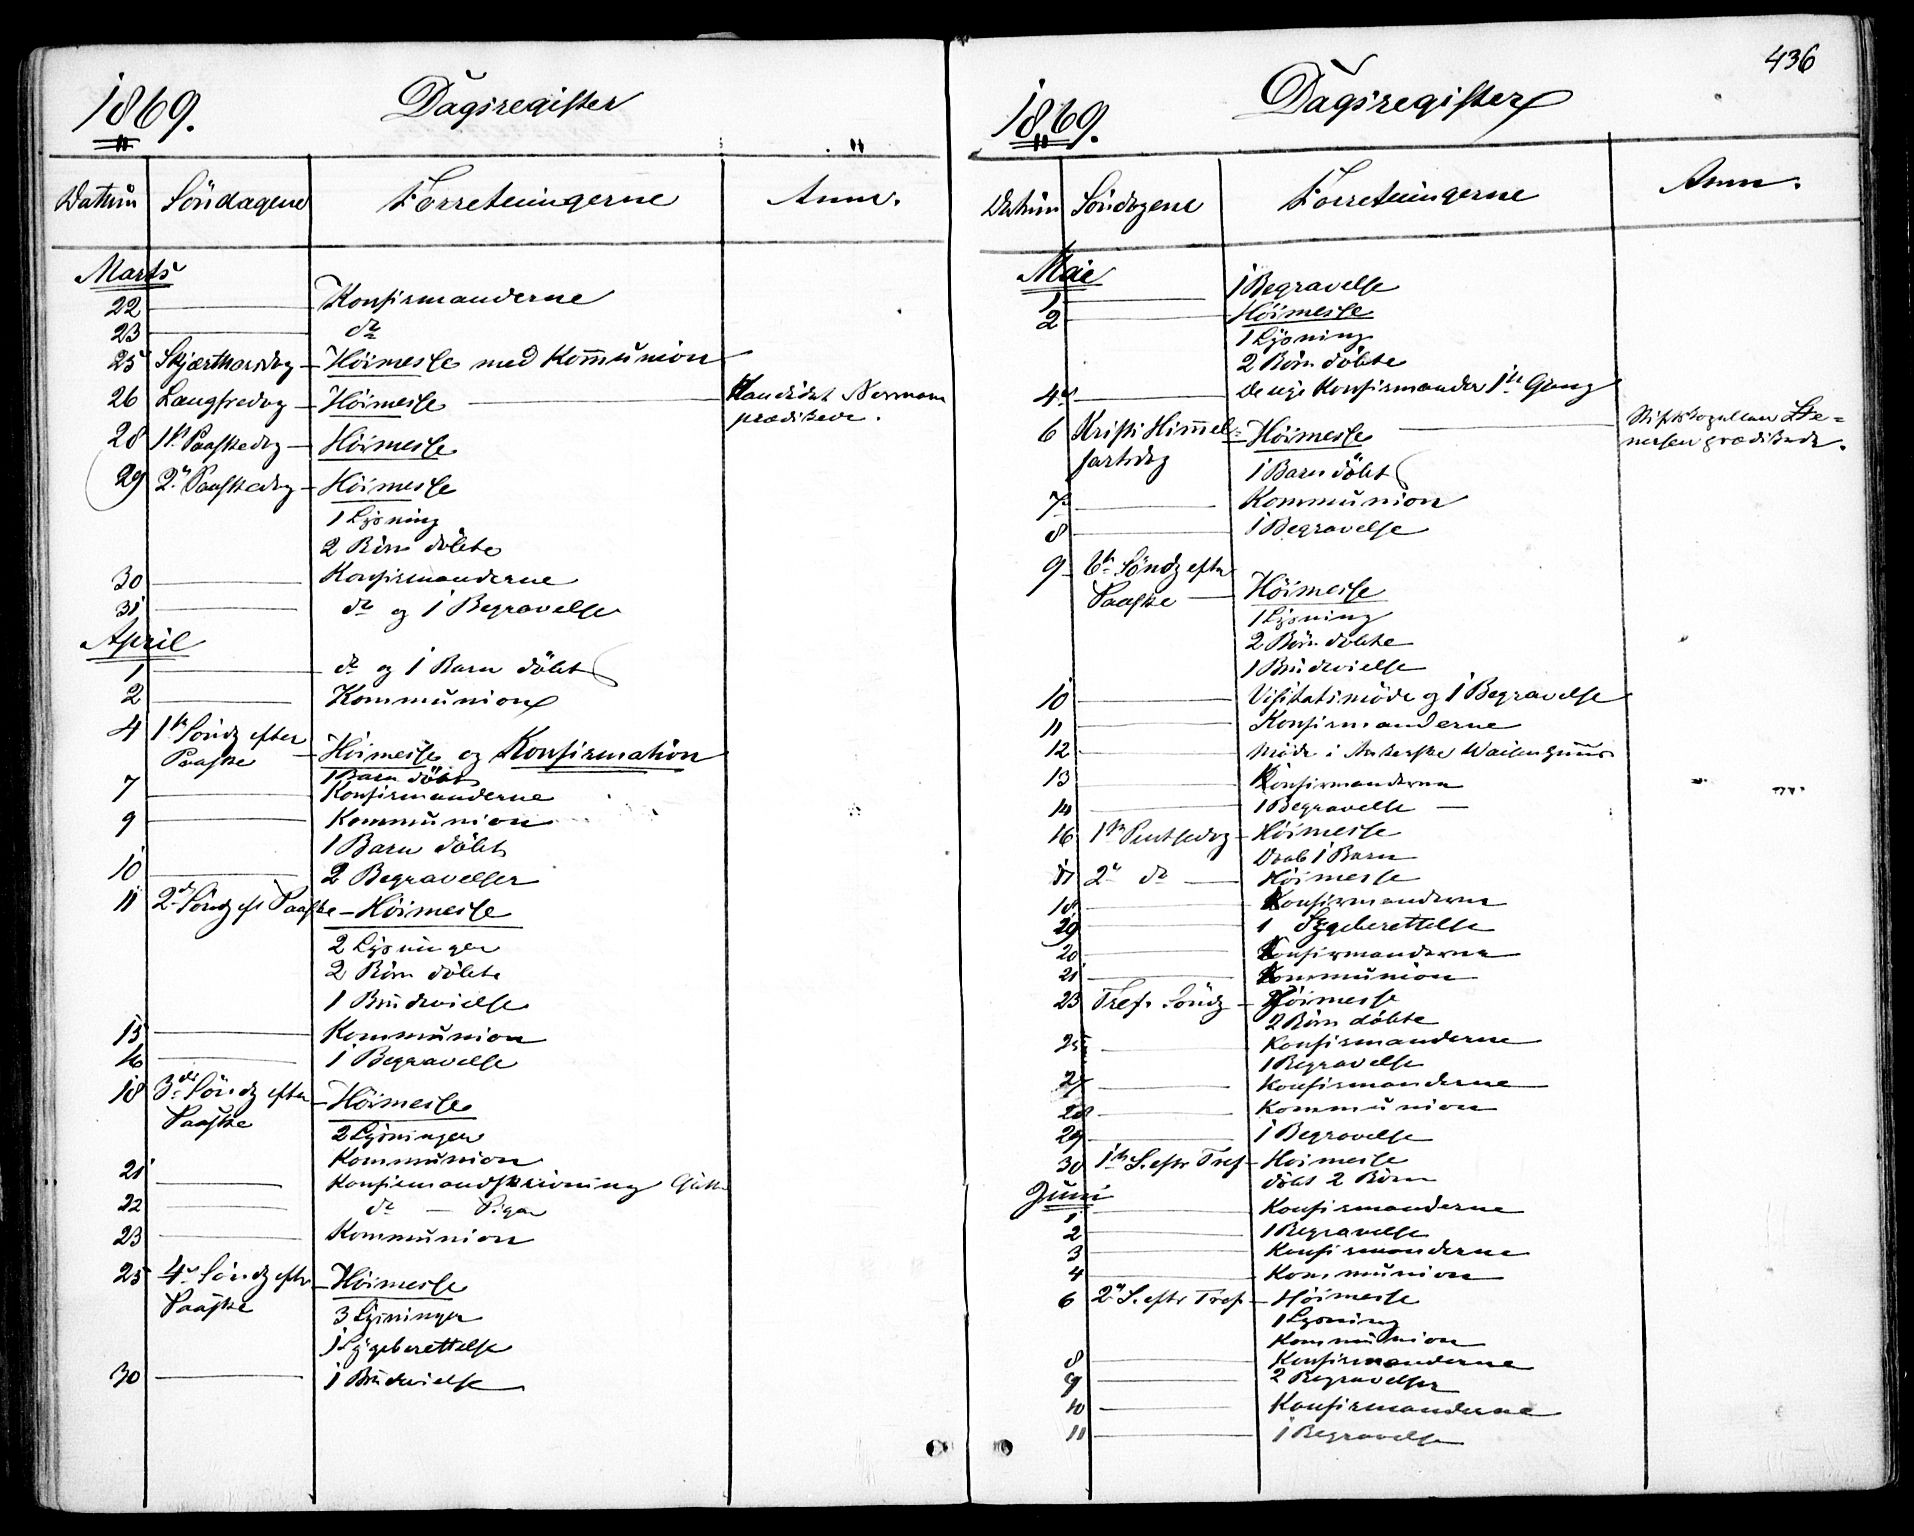 1869.
Dagsregister
Datum Söndagene Forretningerne Anm.
Marts
22 Konfirmanderne
23 do
25 Skjærthorsdag - Höimesse med Kommunion
26 Langfredag - Höimesse Kandidat
prædikede.
28 1ste Paaskedag - Höimesse
29 2den Paaskedag - Höimesse
1 Lysning
2 Börn döbte
30 Konfirmanderne
31 do og 1 Begravelse
April
1 do og 1 Barn döbt
2 Kommunion
4 1ste Söndg efter
Paaske - Höimesse og Konfirmation
1 Barn döbt
7 Konfirmanderne
9 Kommunion
1 Barn döbt
10 2 Begravelser
11 2den Söndg eft Paaske - Höimesse
2 Lysninger
2 Börn döbte
1 Brudevielse
15 Kommunion
16 1 Begravelse
18 3die Söndg efter
Paaske - Höimesse
2 Lysninger
Kommunion
21 Konfirmandskrivning Gutter
22 do - Piger
23 Kommunion
25 4de Söndg efter
Paaske - Höimesse
3 Lysninger
1 Sygeberettelse
30 1 Brudevielse
436
1869.
Dagsregister
Datum Söndagene Forretningerne Anm.
Mai
1 1 Begravelse
2 Höimesse
1 Lysning
2 Börn döbte
4 De nye Konfirmander 1ste Gang
6 Kristi Himmel-
fartsdag - Höimesse Stiftskapellan Ste-
nersen prædikede.
1 Barn döbt
7 Kommunion
8 1 Begravelse
9 6te Söndg efter
Paaske - Höimesse
1 Lysning
2 Börn döbte
1 Brudevielse
10 Visitatsmöde og 1 Begravelse
11 Konfirmanderne
12 Möde i Ankerske Waisenhuus
13 Konfirmanderne
14 1 Begravelse
16 1ste Pintsedag - Höimesse
Daab 1 Barn
17 2den do - Höimesse
18 Konfirmanderne
1 Sygeberettelse
20 Konfirmanderne
21 Kommunion
23 Tref. Söndg - Höimesse
2 Börn döbte
25 Konfirmanderne
1 Begravelse
27 Konfirmanderne
28 Kommunion
29 1 Begravelse
30 1ste S. eftr Tref - Höimesse
döbt 2 Börn
Juni
1 Konfirmanderne
2 1 Begravelse
3 Konfirmanderne
4 Kommunion
6 2den S. eftr Tref. - Höimesse
1 Lysning
Kommunion
8 Konfirmanderne
9 2 Begravelser
10 Konfirmanderne
11 1 Begravelse